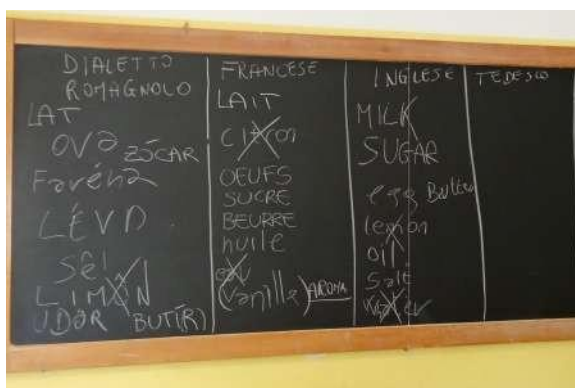 DIALETTO
ROMAGNOLO
LAT
OVƏ ZÓCAR
Faréna
LÉVD
Sêl
LIMON
UDÔR BUTÍR)
FRANCESE
LAIT
Citron
OEUFS
SUCRE
BEURRE
huile
(vanille) AROMA
INGLESE
MILK
SUGAR
egg
lemon
oil
Salt
Water
TEDESCO